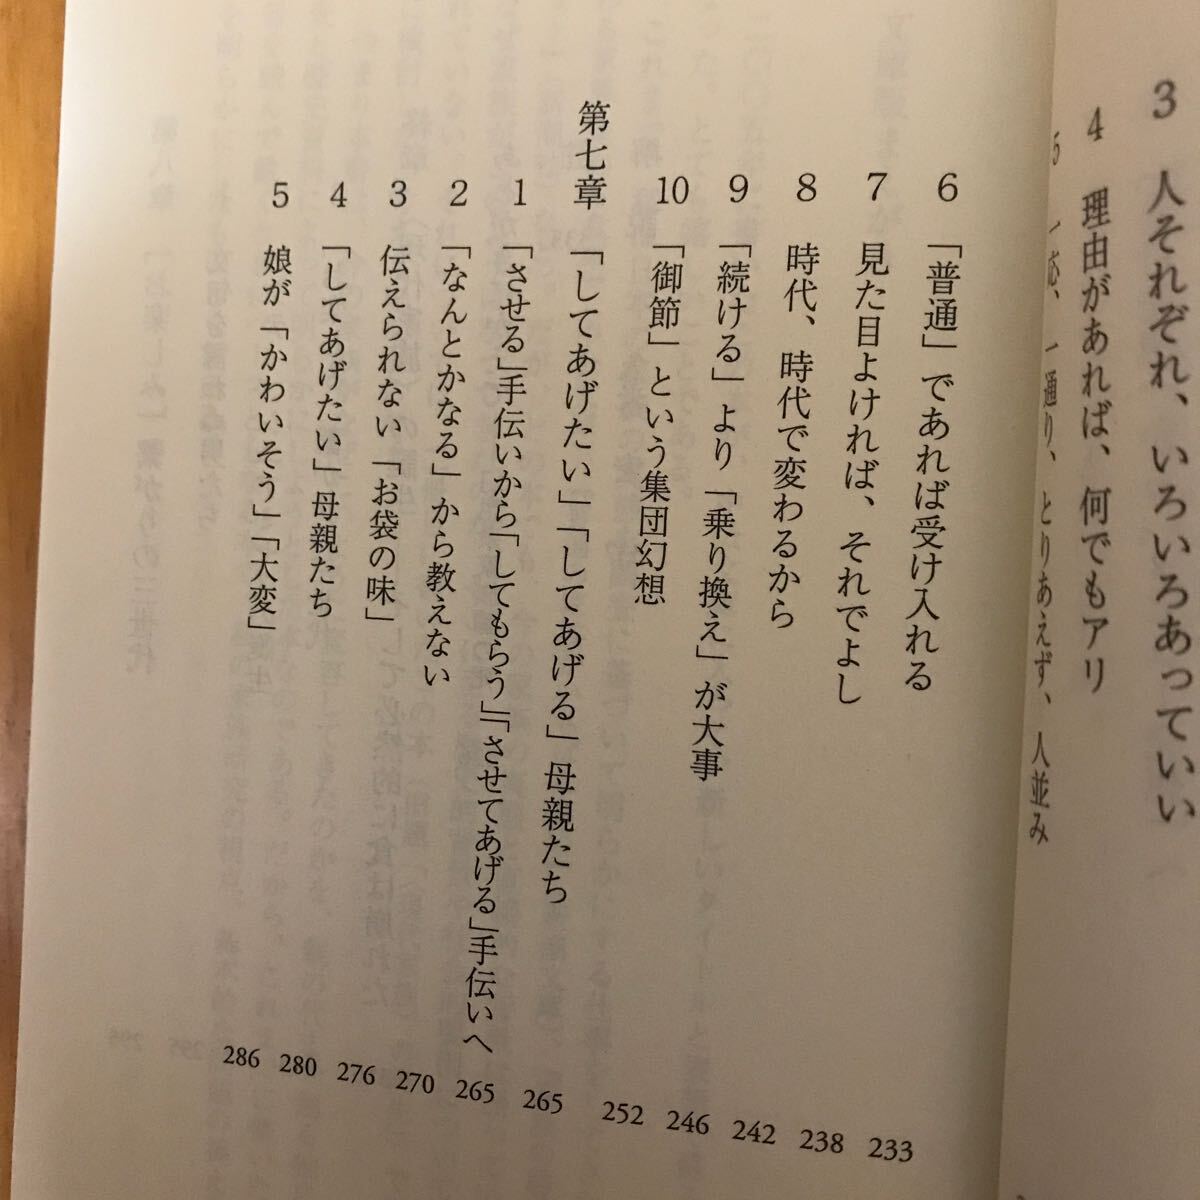 3 人それぞれ、いろいろあっていい
4 理由があれば、何でもアリ
5 一応、一通り、とりあえず、人並み
6 「普通」であれば受け入れる 233
7 見た目よければ、それでよし 238
8 時代、時代で変わるから 242
9 「続ける」より「乗り換え」が大事 246
10 「御節」という集団幻想 252
第七章 「してあげたい」「してあげる」母親たち 265
1 「させる」手伝いから「してもらう」「させてあげる」手伝いへ 265
2 「なんとかなる」から教えない 270
3 伝えられない「お袋の味」 276
4 「してあげたい」母親たち 280
5 娘が「かわいそう」「大変」 286